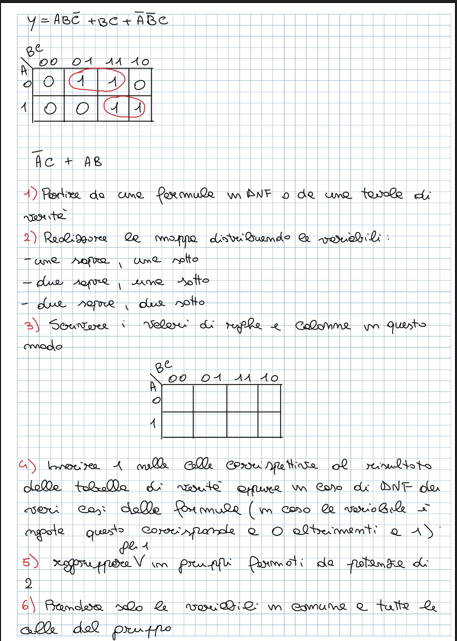 y = ABC̄ + BC + ĀB̄C
BC
A 00 01 11 10
0 0 1 1 0
1 0 0 1 1
ĀC + AB
1) Partire da una formula in DNF o da una tavola di
verità
2) Realizzare la mappa distribuendo le variabili:
- una sopra, una sotto
- due sopra, una sotto
- due sopra, due sotto
3) Scrivere i valori di righe e colonne in questo
modo
BC
A 00 01 11 10
0
1
4) Inserire 1 nelle celle corrispettive al risultato
della tabella di verità oppure in caso di DNF dei
veri casi della formula (in caso la variabile è
negata questo corrisponde a 0 altrimenti a 1)
gli 1
5) raggruppare V in gruppi formati da potenze di
2
6) Prendere solo le variabili in comune a tutte le
celle del gruppo